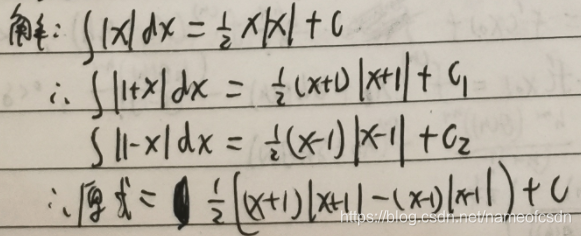 解: ∫|x|dx = ½x|x| + C
∴ ∫|1+x|dx = ½(x+1)|x+1| + C₁
∫|1-x|dx = ½(x-1)|x-1| + C₂
∴ 原式 = ½((x+1)|x+1| - (x-1)|x-1|) + C
https://blog.csdn.net/nameofcsdn